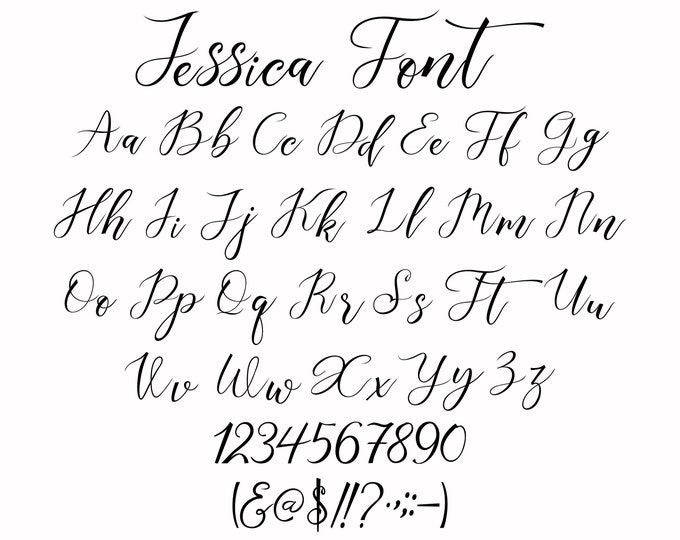 Jessica Font
Aa Bb Cc Dd Ee Ff Gg
Hh Ii Jj Kk Ll Mm Nn
Oo Pp Qq Rr Ss Tt Uu
Vv Ww Xx Yy Zz
1234567890
(&@$!!?.,;:-)